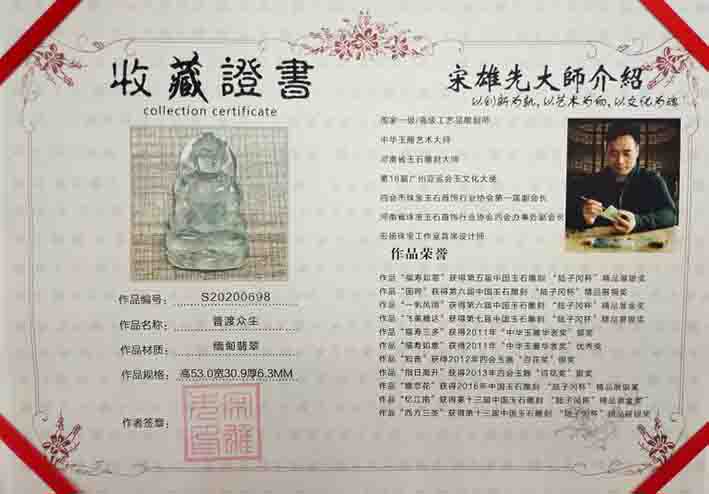 收藏證書
collection certificate
作品编号: S20200698
作品名称: 普渡众生
作品材质: 缅甸翡翠
作品规格: 高53.0宽30.9厚6.3MM
作者签章:
宋雄先大師介紹
以创新为轨,以艺术为御,以文化为魂
国家一级/高级工艺品雕刻师
中华玉雕艺术大师
河南省玉石雕刻大师
第16届广州亚运会玉文化大使
四会市珠宝玉石首饰行业协会第一届副会长
河南省珠宝玉石首饰行业协会四会办事处副会长
宏扬珠宝工作室首席设计师
作品荣誉
作品“福寿如意”获得第五届中国玉石雕刻“陆子冈杯”精品最银奖
作品 获得第六届中国玉石雕刻“陆子冈杯”精品展铜奖
作品“一帆风顺”获得第六届中国玉石雕刻“陆子冈杯”精品展金奖
作品“飞黄腾达”获得第七届中国玉石雕刻“陆子冈杯”精品展银奖
作品“福寿三多”获得2011年“中华玉雕华表奖”银奖
作品“福寿如意”获得2011年“中华玉雕华表奖”优秀奖
作品“如意”获得2012年四会玉雕“百花奖”银奖
作品“指日高升”获得2013年四会玉雕“百花奖”银奖
作品 获得2016年中国玉石雕刻“陆子冈杯”精品展银奖
作品“忆江南”获得第十三届中国玉石雕刻“陆子冈杯”精品展金奖
作品“西方三圣”获得第十三届中国玉石雕刻“陆子冈杯”精品展银奖